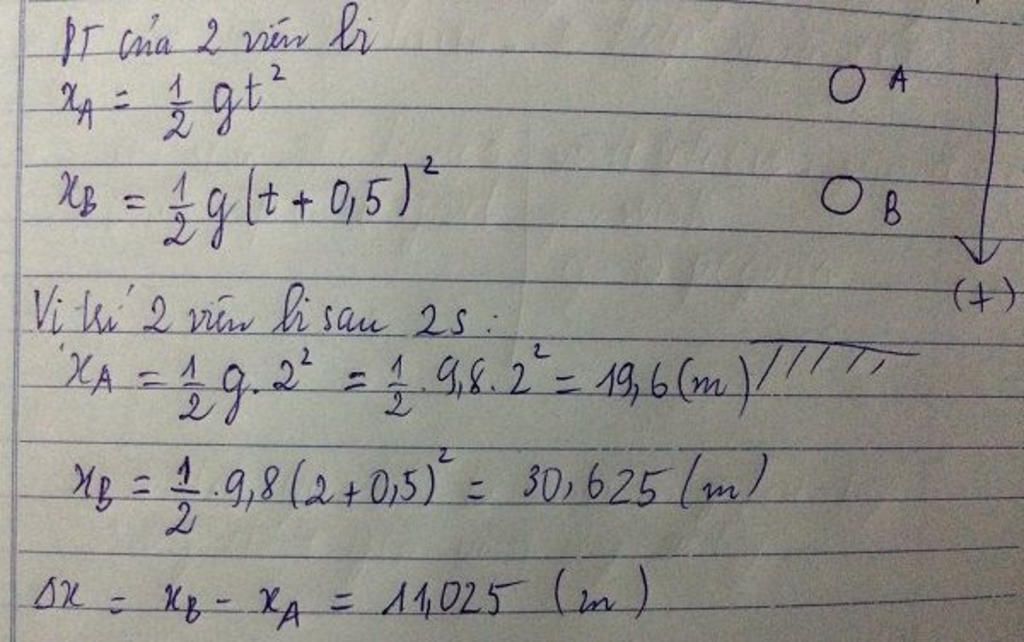 PT của 2 viên bi
x_A = 1/2 gt²
A
x_B = 1/2 g(t + 0,5)²
B
(+)
Vị trí 2 viên bi sau 2s :
x_A = 1/2 g. 2² = 1/2 . 9,8 . 2² = 19,6 (m)
x_B = 1/2 . 9,8 (2 + 0,5)² = 30,625 (m)
Δx = x_B - x_A = 11,025 (m)